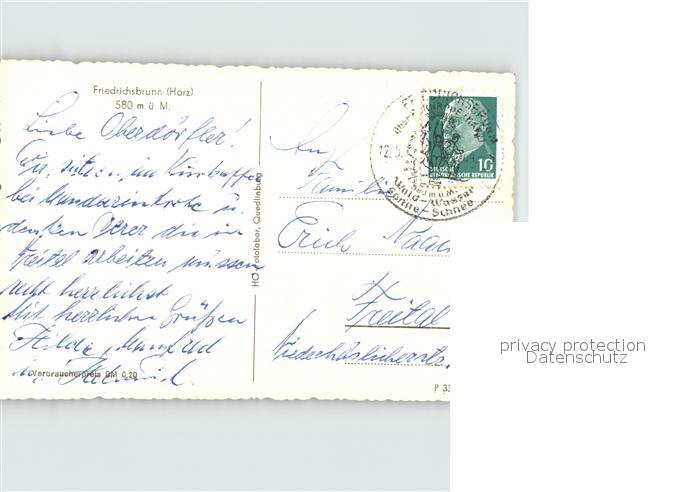 Friedrichsbrunn (Harz)
580 m ü. M.
Liebe Oberdörfler!
sitzen im Kurkaffee
bei Mandarintorte u.
denken Derer die in
Freital arbeiten müssen
recht herzlichst
Mit herzlichen Grüßen
Hilde, Manfred
Verbraucherpreis DM 0,20
HO Fotolabor, Quedlinburg
An
Familie
Erich
Freital
12.5.
Wald - Wasser
Sonne - Schnee
10
DEUTSCHE
DEMOKRATISCHE REPUBLIK
P 33
privacy protection
Datenschutz